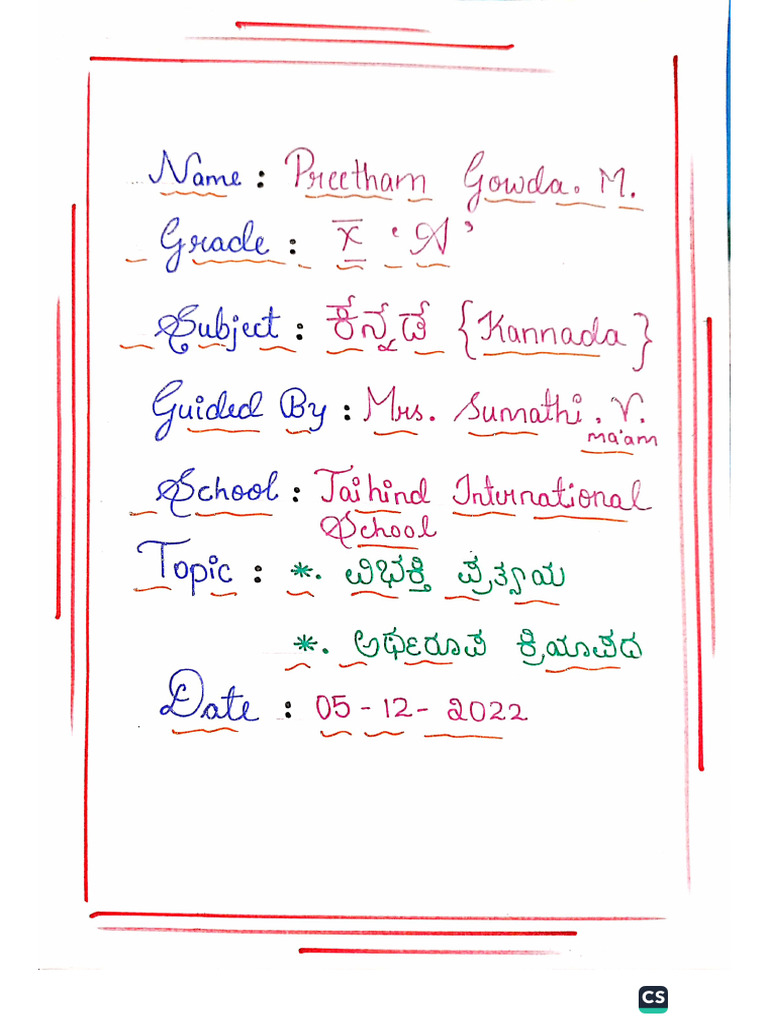 Name : Preetham Gowda. M.
Grade : X 'A'
Subject : ಕನ್ನಡ {Kannada}
Guided By : Mrs. Sumathi. V.
ma'am
School : Jaihind International
School
Topic : *. ವಿಭಕ್ತಿ ಪ್ರತ್ಯಯ
*. ಅರ್ಥರೂಪ ಕ್ರಿಯಾಪದ
Date : 05-12-2022
CS